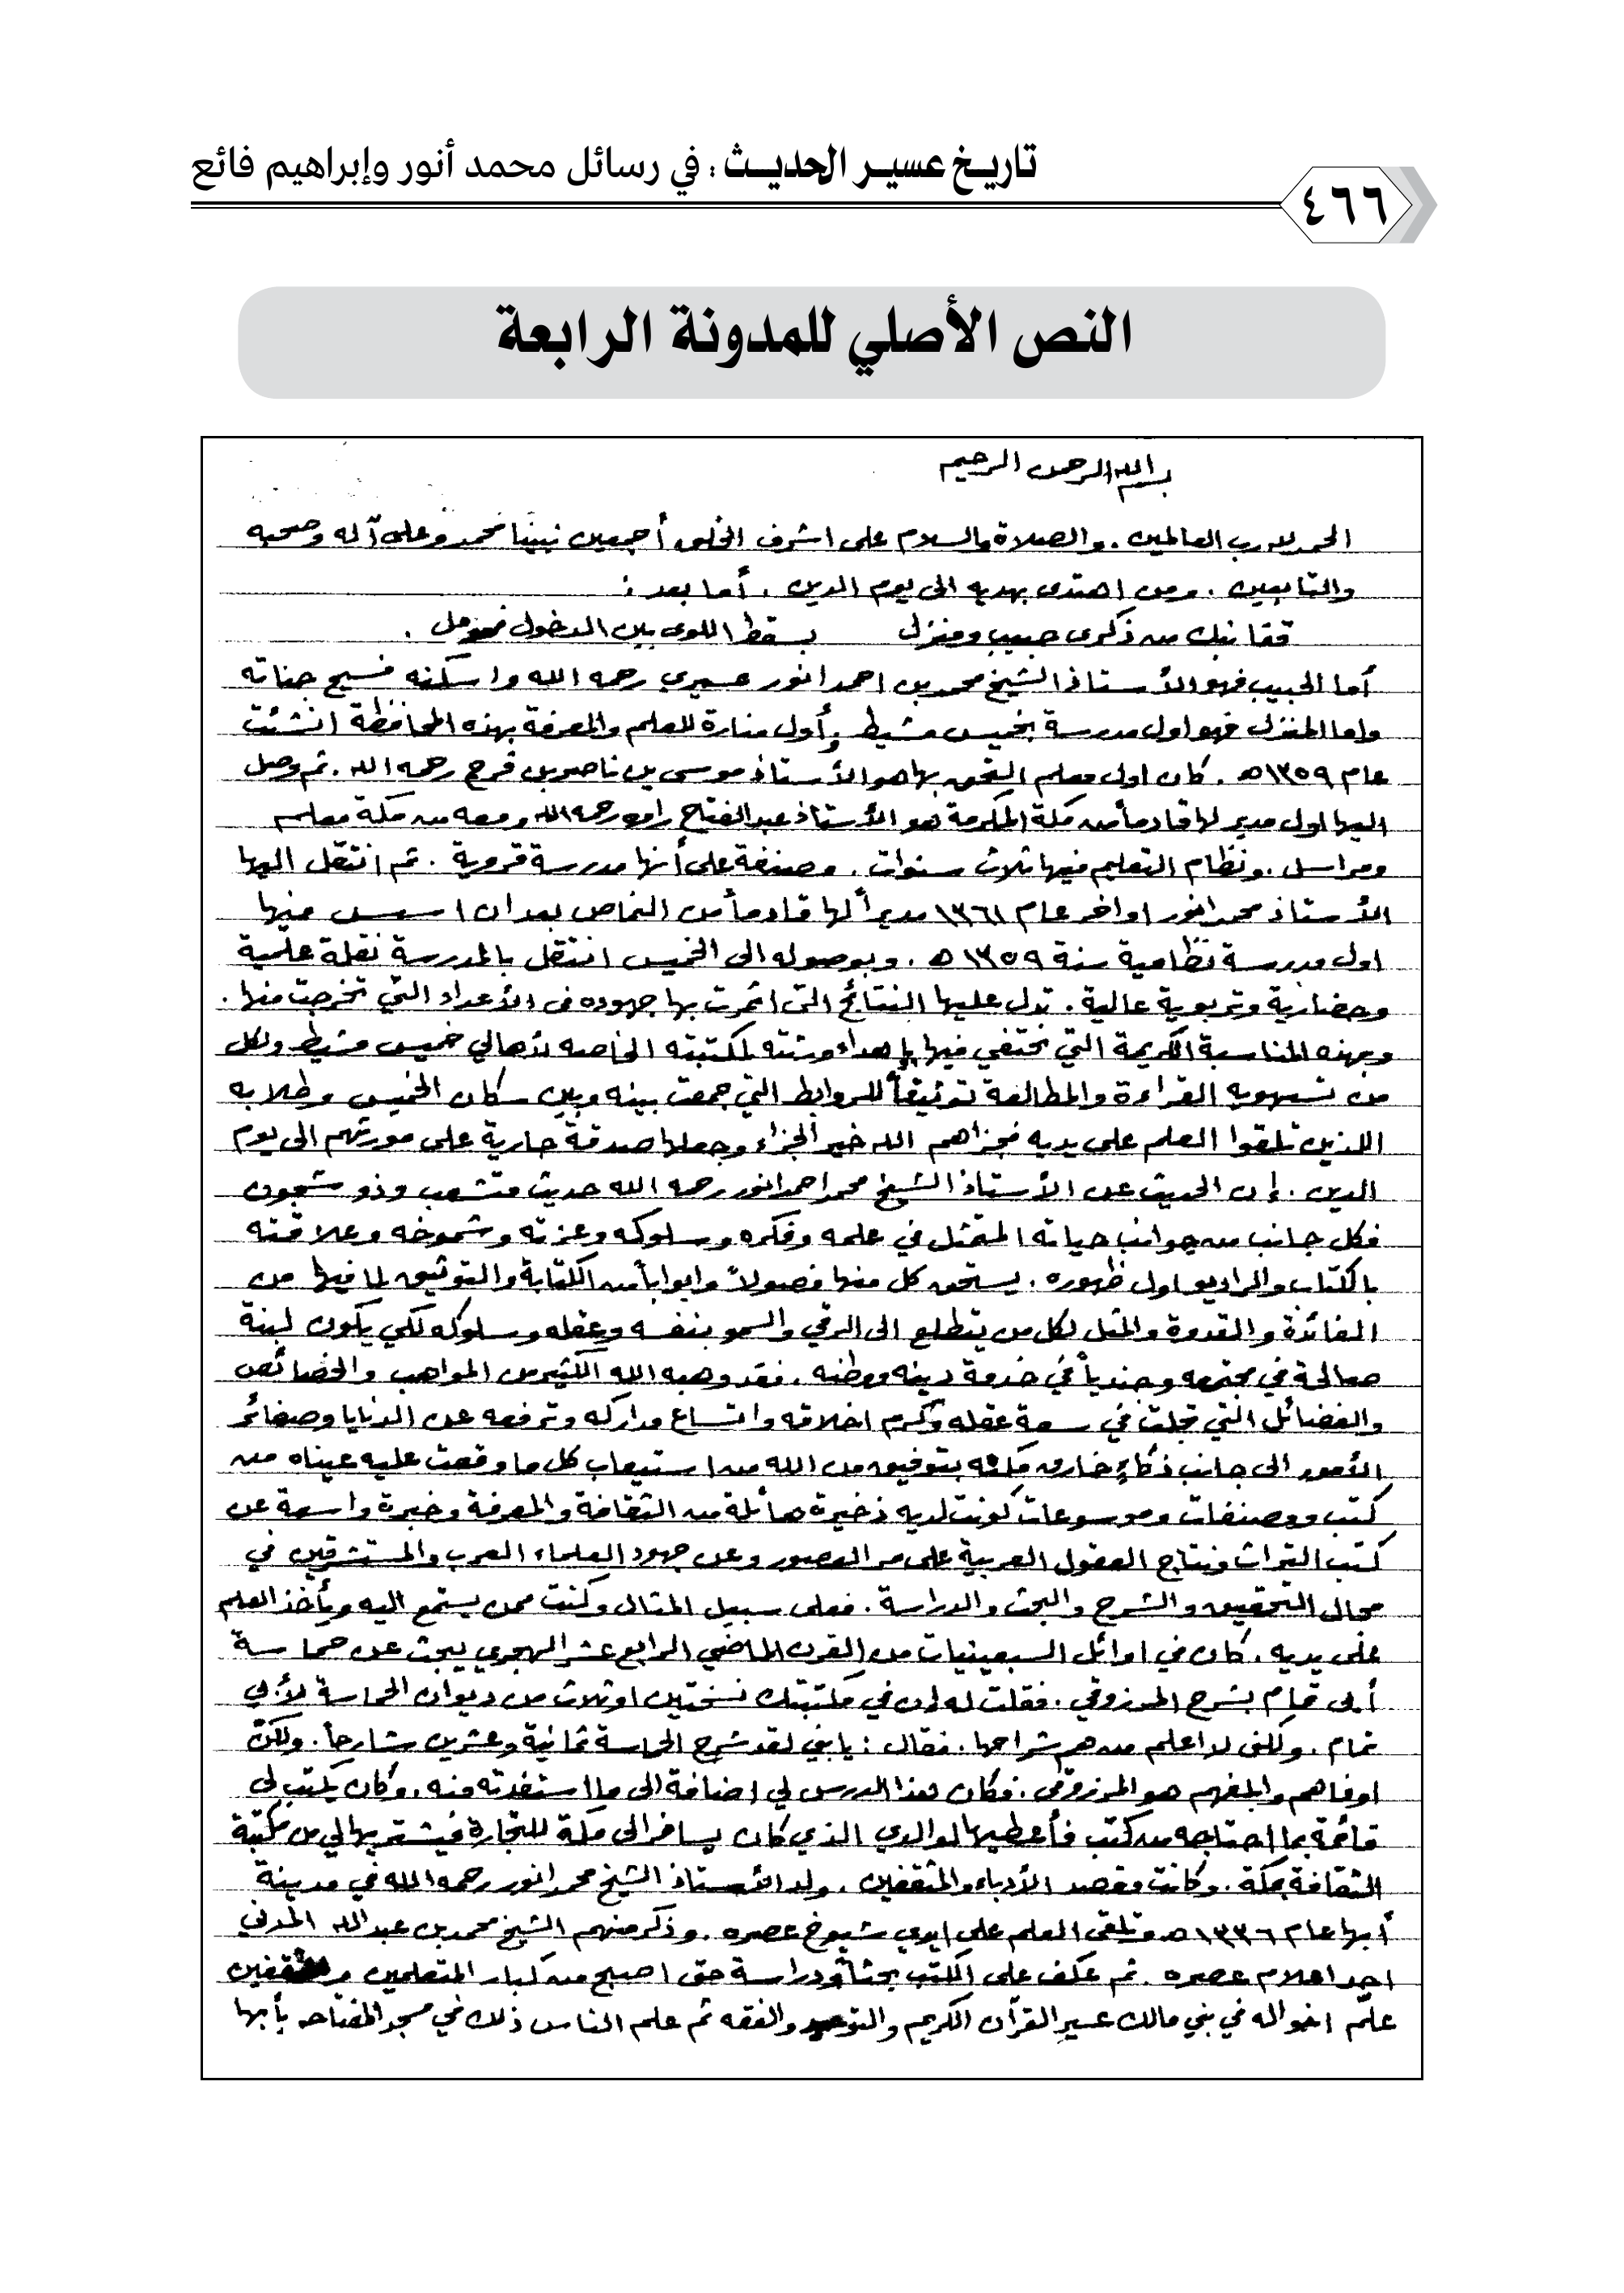 تاريخ عسير الحديث : في رسائل محمد أنور وإبراهيم فائع
٤٦٦
النص الأصلي للمدونة الرابعة
بسم الله الرحمن الرحيم
الحمد لله رب العالمين . والصلاة والسلام على اشرف الخلق أجمعين نبينا محمد وعلى آله وصحبه
والتابعين . ومن اهتدى بهديه الى يوم الدين . أما بعد :
قفا نبك من ذكرى حبيب ومنزل بسقط اللوى بين الدخول فحومل .
أما الحبيب فهو الأستاذ الشيخ محمد بن احمد انور عسيري رحمه الله واسكنه فسيح جناته
واما المنزل فهو اول مدرسة بخميس مشيط . وأول منارة للعلم والمعرفة بهذه المحافظة انشئت
عام ١٣٥٩ه . كان اول معلم التحق بها هو الأستاذ موسى بن ناصر بن فرج رحمه الله . ثم وصل
اليها اول مدير لها قادماً من مكة المكرمة هو الأستاذ عبدالفتاح راوه رحمه الله ومعه من مكة معلم
ومراسل . ونظام التعليم فيها ثلاث سنوات . ومصنفة على أنها مدرسة قروية . ثم انتقل اليها
الأستاذ محمد انور اواخر عام ١٣٦١ مديراً لها قادماً من النماص بعد ان اسس فيها
اول مدرسة نظامية سنة ١٣٥٩ه . وبوصوله الى الخميس انتقل بالمدرسة نقلة علمية
وحضارية وتربوية عالية . تدل عليها النتائج التي اثمرت بها جهوده في الأعداد التي تخرجت منها .
وبهذه المناسبة الكريمة التي نحتفي فيها بإهداء ورثته لمكتبته الخاصه لأهالي خميس مشيط ولكل
من تستهويه القراءة والمطالعة توثيقاً للروابط التي جمعت بينه وبين سكان الخميس وطلابه
اللذين تلقوا العلم على يديه فجزاهم الله خير الجزاء وجعلها صدقة جارية على مورثهم الى يوم
الدين . إن الحديث عن الأستاذ الشيخ محمد احمد انور رحمه الله حديث متشعب وذو شجون
فكل جانب من جوانب حياته المتمثل في علمه وفكره وسلوكه وعزته وشموخه وعلاقته
بالكتاب والراديو اول ظهوره . يستحق كل منها فصولاً وابواباً من الكتابة والتوثيق لما فيها من
الفائدة والقدوة والمثل لكل من يتطلع الى الرقي والسمو بنفسه وعقله وسلوكه لكي يكون لبنة
صالحة في مجتمعه وجندياً في خدمة دينه ووطنه . فقد وهبه الله الكثير من المواهب والخصائص
والفضائل التي تجلت في سعة عقله وكرم اخلاقه واتساع مداركه وترفعه عن الدنايا وصغائر
الأمور الى جانب ذكاءٍ خارق مكنه بتوفيق من الله من استيعاب كل ما وقعت عليه عيناه من
كتب ومصنفات وموسوعات كونت لديه ذخيرة هائلة من الثقافة والمعرفة وخبرة واسعة عن
كتب التراث ونتاج العقول العربية على مر العصور وعن جهود العلماء العرب والمستشرقين في
مجال التحقيق والشرح والبحث والدراسة . فعلى سبيل المثال وكنت ممن يستمع اليه ويأخذ العلم
على يديه . كان في اوائل السبعينيات من القرن الماضي الرابع عشر الهجري يبحث عن حماسة
أبي تمام بشرح المرزوقي . فقلت له إن في مكتبتك نسختين او ثلاث من ديوان الحماسة لأبي
تمام . ولكني لا اعلم من هم شراحها . فقال : يا بني لقد شرح الحماسة ثمانية وعشرين شارحاً . ولكنّ
اوفاهم وابلغهم هو المرزوقي . فكان هذا الدرس لي اضافة الى ما استفدته منه . وكان يكتب لي
قائمة بما احتاجه من كتب فأعطيها لوالدي الذي كان يسافر الى مكة للتجارة فيشتريها لي من مكتبة
الثقافة بمكة . وكانت مقصد الأدباء والمثقفين . ولد الأستاذ الشيخ محمد انور رحمه الله في مدينة
أبها عام ١٣٣٦ه وتلقى العلم على ايدي شيوخ عصره . وذكر منهم الشيخ محمد بن عبدالله المدني
احد اعلام عصره . ثم عكف على الكتب بحثاً ودراسة حتى اصبح من كبار المتعلمين والمثقفين
علّم اخواله في بني مالك عسير القرآن الكريم والتوحيد والفقه ثم علم الناس ذلك في مسجد المفتاحه بأبها